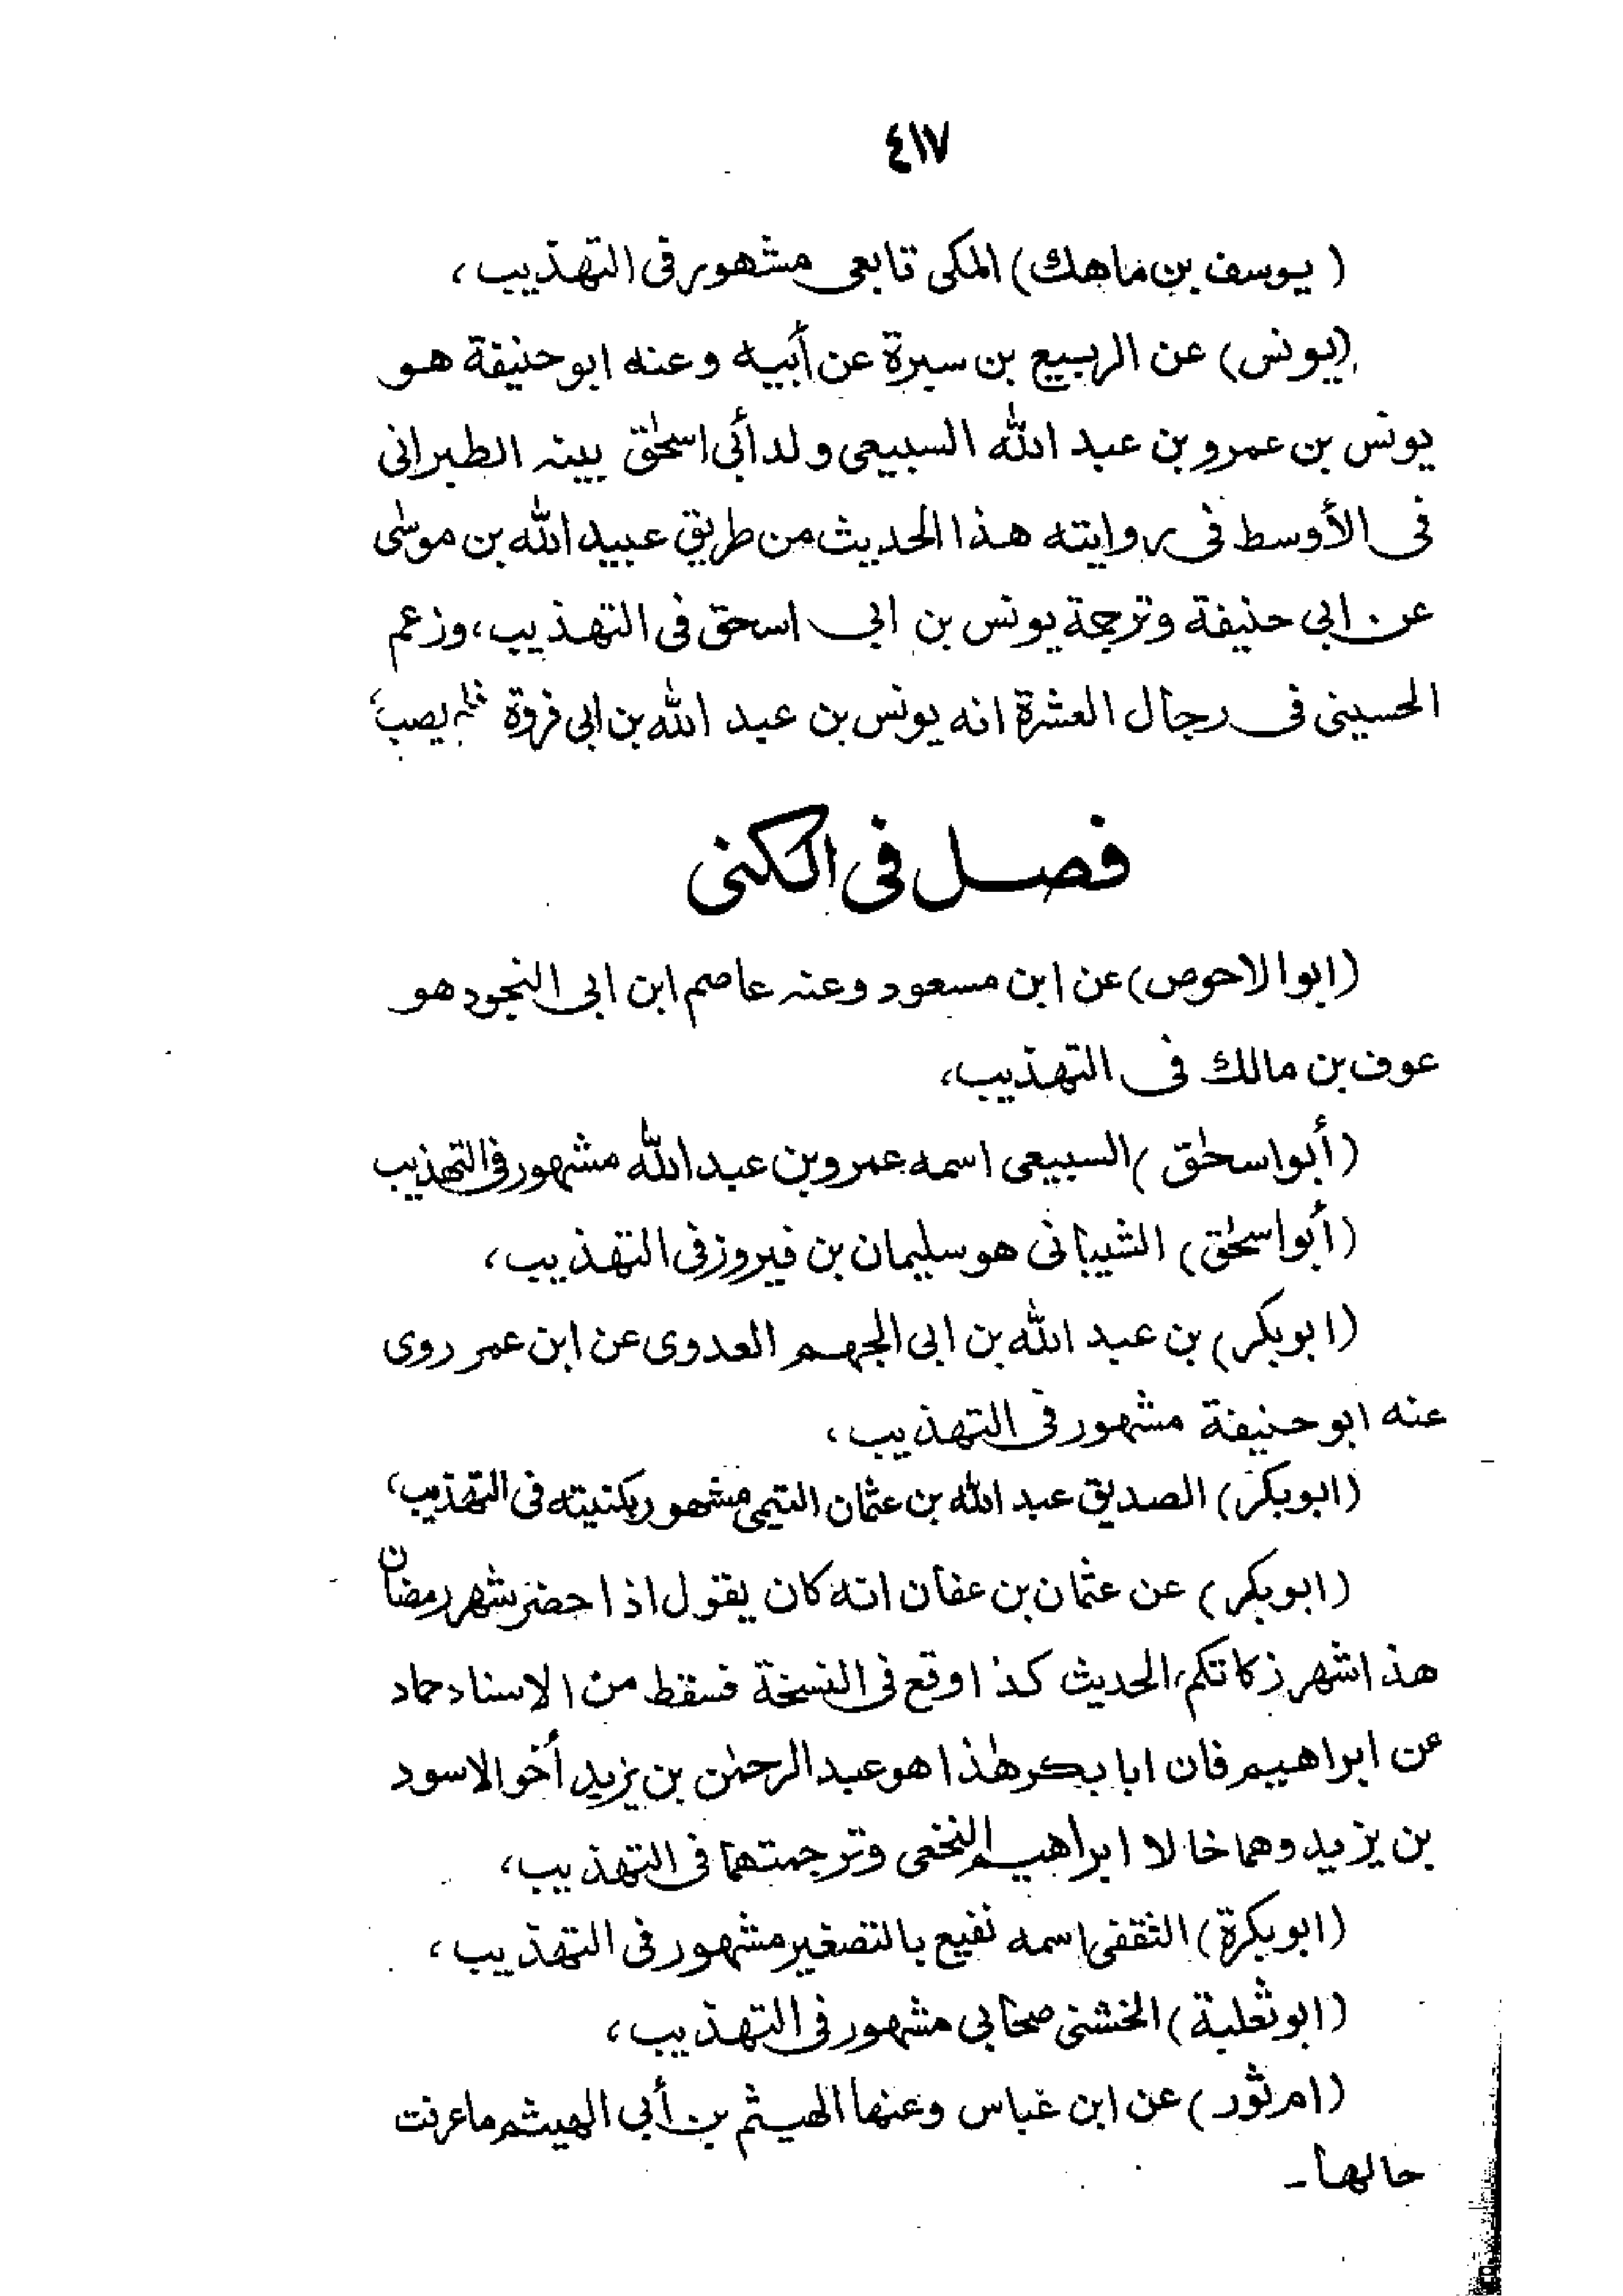 ٤١٧
(يوسف بن ماهك) المكى تابعى مشهور فى التهذيب،
(يونس) عن الربيع بن سبرة عن أبيه وعنه ابو حنيفة هو
يونس بن عمرو بن عبد الله السبيعى ولد أبى اسحٰق بينه الطبرانى
فى الأوسط فى روايته هذا الحديث من طريق عبيد الله بن موسٰى
عن ابى حنيفة وترجمة يونس بن ابى اسحق فى التهذيب، وزعم
الحسينى فى رجال العشرة انه يونس بن عبد الله بن ابى فروة فلم يصب،
فصل فى الكنى
(ابوالاحوص) عن ابن مسعود وعنه عاصم ابن ابى النجود هو
عوف بن مالك فى التهذيب،
(أبواسحٰق) السبيعى اسمه عمرو بن عبد الله مشهور فى التهذيب
(أبواسحٰق) الشيبانى هو سليمان بن فيروز فى التهذيب،
(ابوبكر) بن عبد الله بن ابى الجهم العدوى عن ابن عمر روى
عنه ابو حنيفة مشهور فى التهذيب،
(ابوبكر) الصديق عبد الله بن عثمان التيمى مشهور بكنيته فى التهذيب،
(ابوبكر) عن عثمان بن عفان انه كان يقول اذا حضر شهر رمضان
هذا شهر زكاتكم، الحديث كذا وقع فى النسخة فسقط من الاسناد حماد
عن ابراهيم فان ابا بكر هٰذا هو عبد الرحمٰن بن يزيد أخو الاسود
بن يزيد وهما خالا ابراهيم النخعى وترجمتهما فى التهذيب،
(ابوبكرة) الثقفى اسمه نفيع بالتصغير مشهور فى التهذيب،
(ابوثعلبة) الخشنى صحابى مشهور فى التهذيب،
(ام ثور) عن ابن عباس وعنها الهيثم بن أبى الهيثم ماعرفت
حالها۔